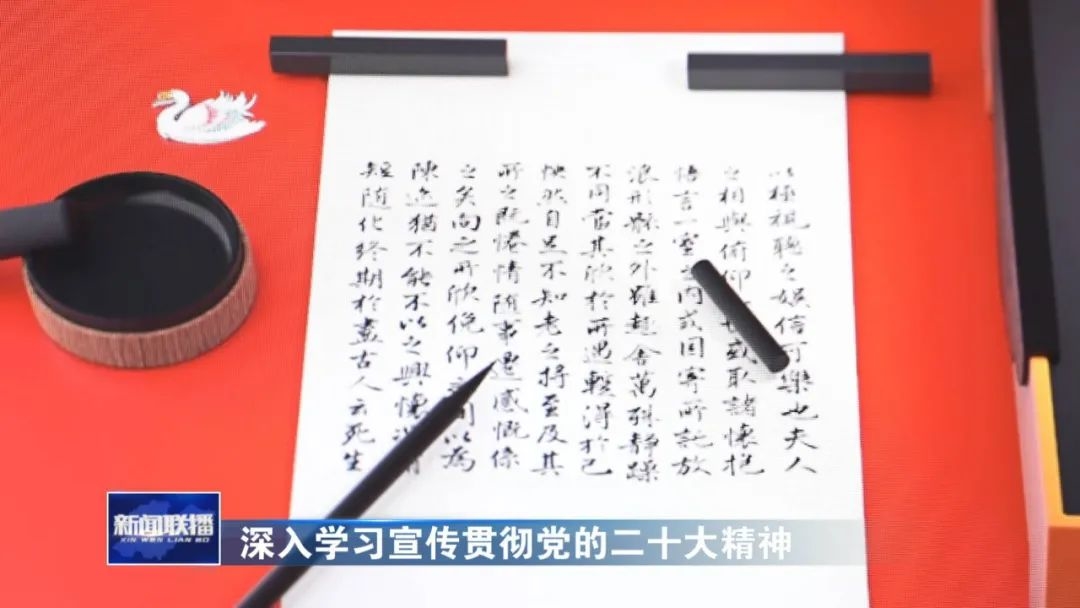 以極視聽之娛信可樂也夫人
之相與俯仰一世或取諸懷抱
悟言一室之内或因寄所託放
浪形骸之外雖趣舍萬殊静躁
不同當其欣於所遇輙得於己
怏然自足不知老之將至及其
所之既惓情随事遷感慨係
之矣向之所欣俛仰之間以為
陳迹猶不能不以之興懷況脩
短随化終期於盡古人云死生
新闻联播
XIN WEN LIAN BO
深入学习宣传贯彻党的二十大精神